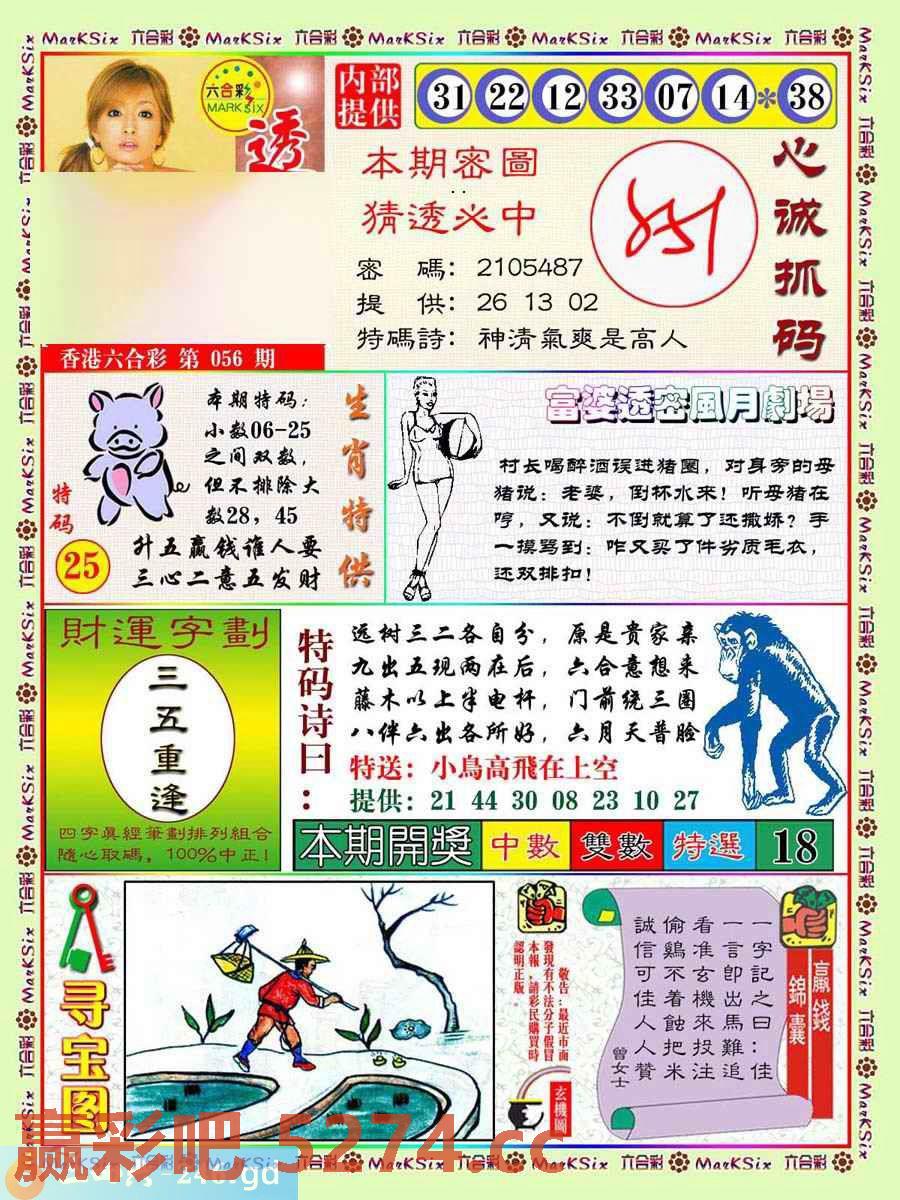 六合彩
MARK SIX
透
内部
提供
31 22 12 33 07 14 * 38
本期密圖
猜透必中
密 碼: 2105487
提 供: 26 13 02
特碼詩: 神清氣爽是高人
心诚抓码
香港六合彩 第 056 期
本期特码:
小数06-25
之间双数,
但不排除大
数28, 45
升五赢钱谁人要
三心二意五发财
特码
25
生肖特供
富婆透密風月劇場
村长喝醉酒误进猪圈, 对身旁的母
猪说: 老婆, 倒杯水来! 听母猪在
哼, 又说: 不倒就算了还撒娇? 手
一摸骂到: 咋又买了件劣质毛衣,
还双排扣!
財運字劃
三五重逢
四字真經筆劃排列組合
隨心取碼, 100%中正!
特码诗曰:
远树三二各自分, 原是贵家亲
九出五现两在后, 六合意想来
藤木以上半电杆, 门前统三圈
八伴六出各所好, 六月天普脸
特送: 小鳥高飛在上空
提供: 21 44 30 08 23 10 27
本期開獎 中數 雙數 特選 18
寻宝图
敬告:最近市面
發現有不法分子假冒
本報,請彩民購買時
認明正版。
玄機圖
一字記之曰:佳
一言即出馬難追
看准玄機來投注
偷鷄不着蝕把米
誠信可佳人人贊
曾女士
贏錢
錦囊
赢彩吧 5274.cc
MarKSix 六合彩